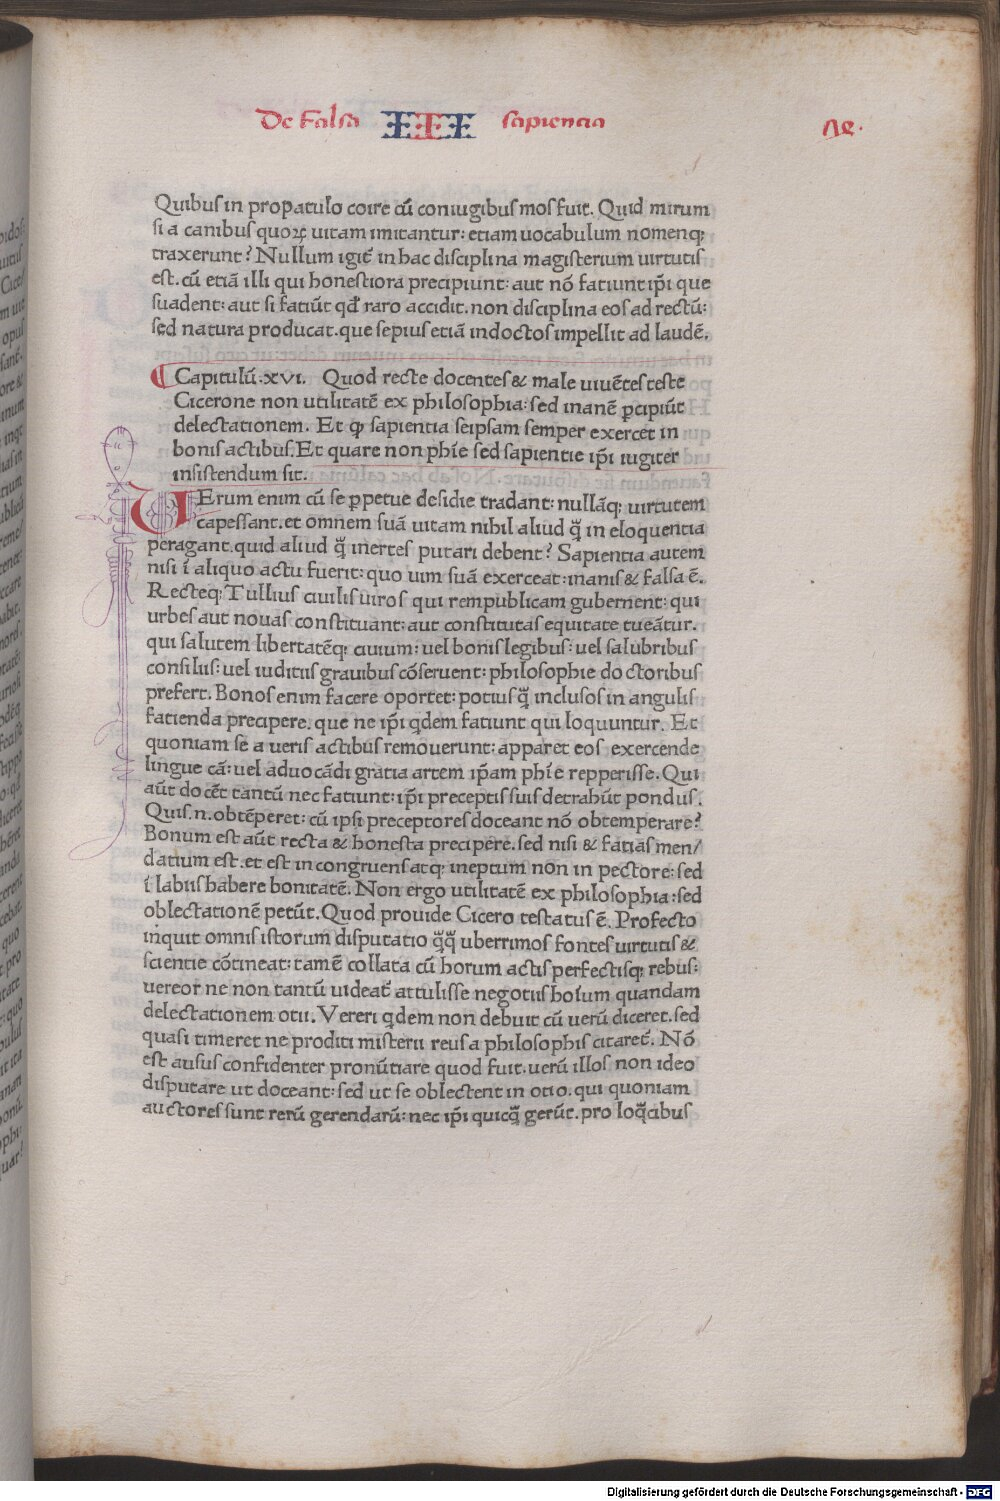 De Falsa III sapiencia
Quibus in propatulo coire cū coniugibus mos fuit. Quid mirum
si a canibus quoꝝ uitam imitantur: etiam uocabulum nomenq;
traxerunt? Nullum igit̄ in hac disciplina magisterium uirtutis
est. cū etiā illi qui honestiora precipiunt: aut nō faciunt ip̄i que
suadent: aut si faciūt qđ raro accidit. non disciplina eos ad rectū:
sed natura producat. que sepius etiā indoctos impellit ad laudē.
Capitulū .XVI. Quod recte docentes & male uiuētes teste
Cicerone non utilitatē ex philosophia: sed inanē ꝑcipiūt
delectationem. Et ꝙ sapientia seipsam semper exercet in
bonis actibus. Et quare non phīe sed sapientie ip̄i iugiter
insistendum sit.
VErum enim cū se ꝑpetue desidie tradant: nullāq; uirtutem
capessant. et omnem suā uitam nihil aliud q̄ in eloquentia
peragant. quid aliud q̄ inertes putari debent? Sapientia autem
nisi ī aliquo actu fuerit: quo uim suā exerceat: inanis & falsa ē.
Recteq; Tullius ciuilis uiros qui rempublicam gubernent: qui
urbes aut nouas constituant: aut constitutas equitate tueātur.
qui salutem libertatēq; ciuium: uel bonis legibus: uel salubribus
consiliis: uel iuditiis grauibus cōseruent: philosophie doctoribus
prefert. Bonos enim facere oportet: potius q̄ inclusos in angulis
facienda precipere. que ne ip̄i qdem faciunt qui loquuntur. Et
quoniam se a ueris actibus remouerunt: apparet eos exercende
lingue cā: uel aduocādi gratia artem ip̄am phīe repperisse. Qui
aūt docēt tantū nec faciunt: ip̄i preceptis suis detrahūt pondus.
Quis .n. obtēperet: cū ipsi preceptores doceant nō obtemperare?
Bonum est aūt recta & honesta precipere. sed nisi & facias men/
datium est. et est incongruens atq; ineptum non in pectore: sed
ī labiis habere bonitatē. Non ergo utilitatē ex philosophia: sed
oblectationē petūt. Quod prouide Cicero testatus ē. Profecto
inquit omnis istorum disputatio q̄q̄ uberrimos fontes uirtutis &
scientie cōtineat: tamē collata cū horum actis perfectisq; rebus:
uereor ne non tantū uideat̄ attulisse negotiis hoīum quandam
delectationem otii. Vereri qdem non debuit cū uerū diceret. sed
quasi timeret ne proditi misterii reus a philosophis citaret̄. Nō
est ausus confidenter pronūtiare quod fuit. uerū illos non ideo
disputare ut doceant: sed ut se oblectent in otio. qui quoniam
auctores sunt rerū gerendarū: nec ip̄i quicq̄ gerūt. pro loq̄cibus
Digitalisierung gefördert durch die Deutsche Forschungsgemeinschaft - DFG